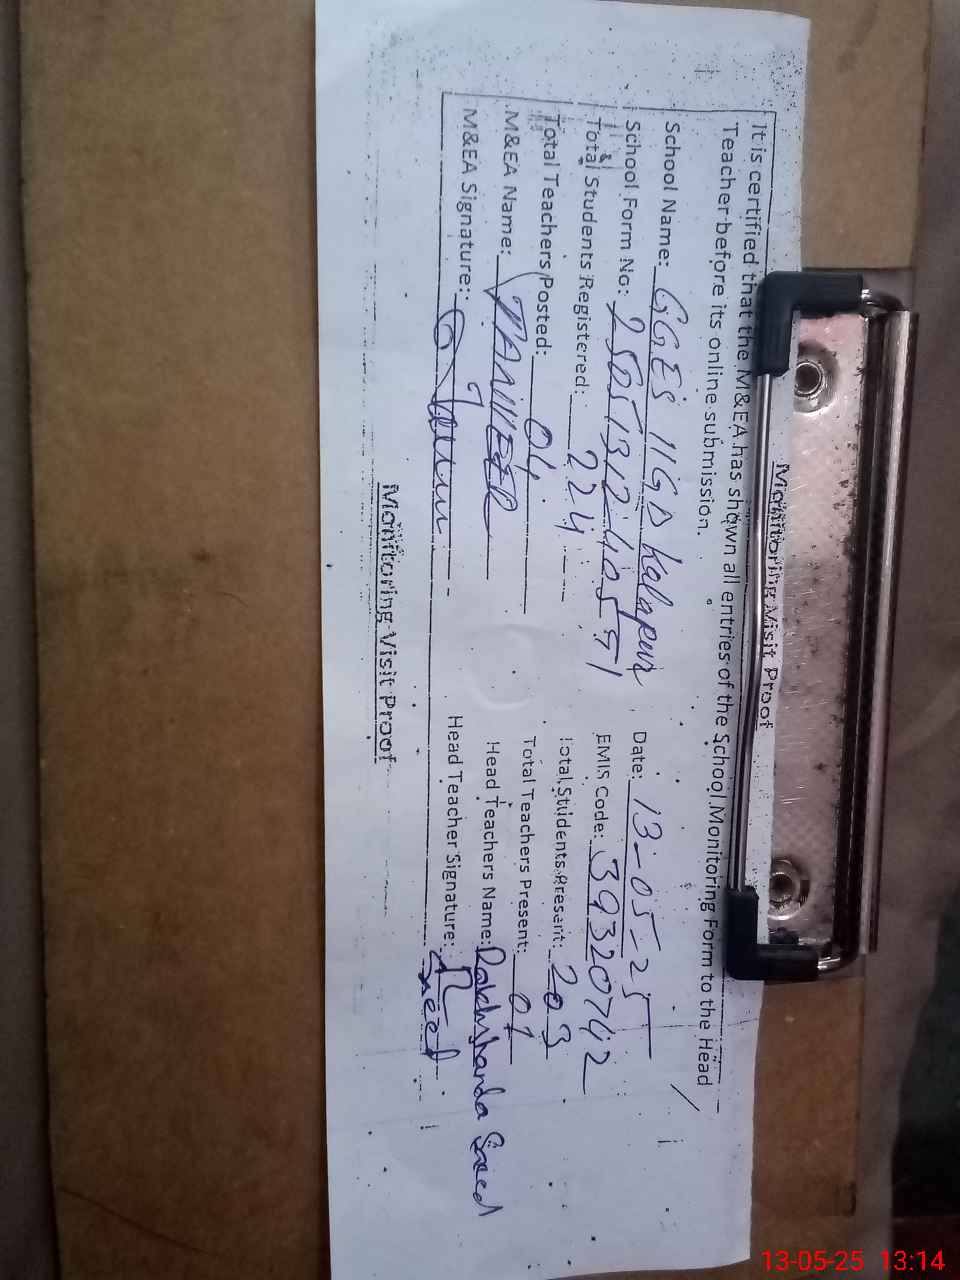 Monitoring Visit Proof
It is certified that the M&EA has shown all entries of the School Monitoring Form to the Head
Teacher before its online submission.
School Name: GGES 11GD Kalapur Date: 13-05-25
School Form No: EMIS Code: 39320742
Total Students Registered: 224 Total Students Present: 203
Total Teachers Posted: 04 Total Teachers Present: 01
M&EA Name: TANVEER Head Teachers Name: Rakhshanda Saeed
M&EA Signature: Head Teacher Signature: Saeed
Monitoring Visit Proof
13-05-25 13:14